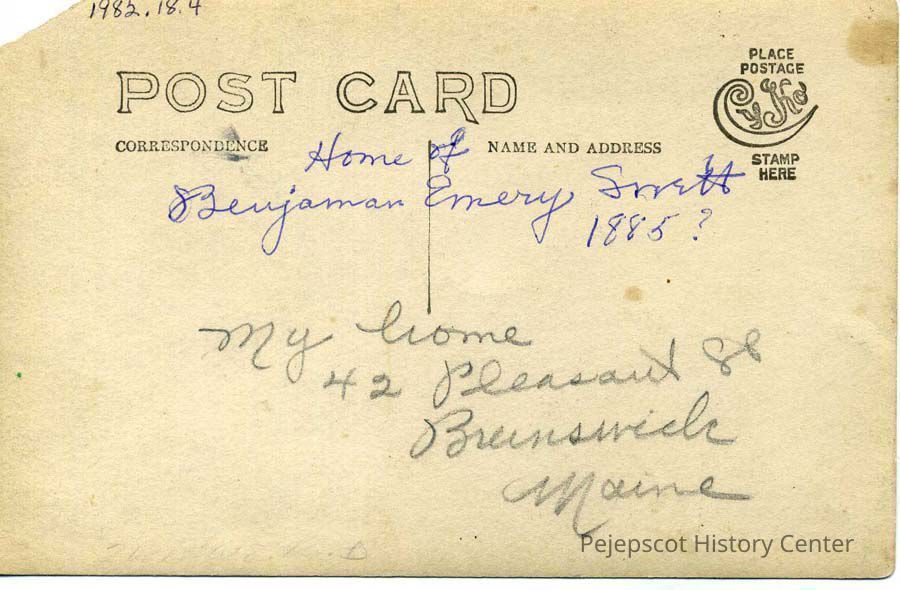 1982.18.4
PLACE
POSTAGE
CyKo
STAMP
HERE
POST CARD
CORRESPONDENCE
NAME AND ADDRESS
Home of
Benjaman Emery Swett
1885?
My home
42 Pleasant St
Brunswick
Maine
Pejepscot History Center